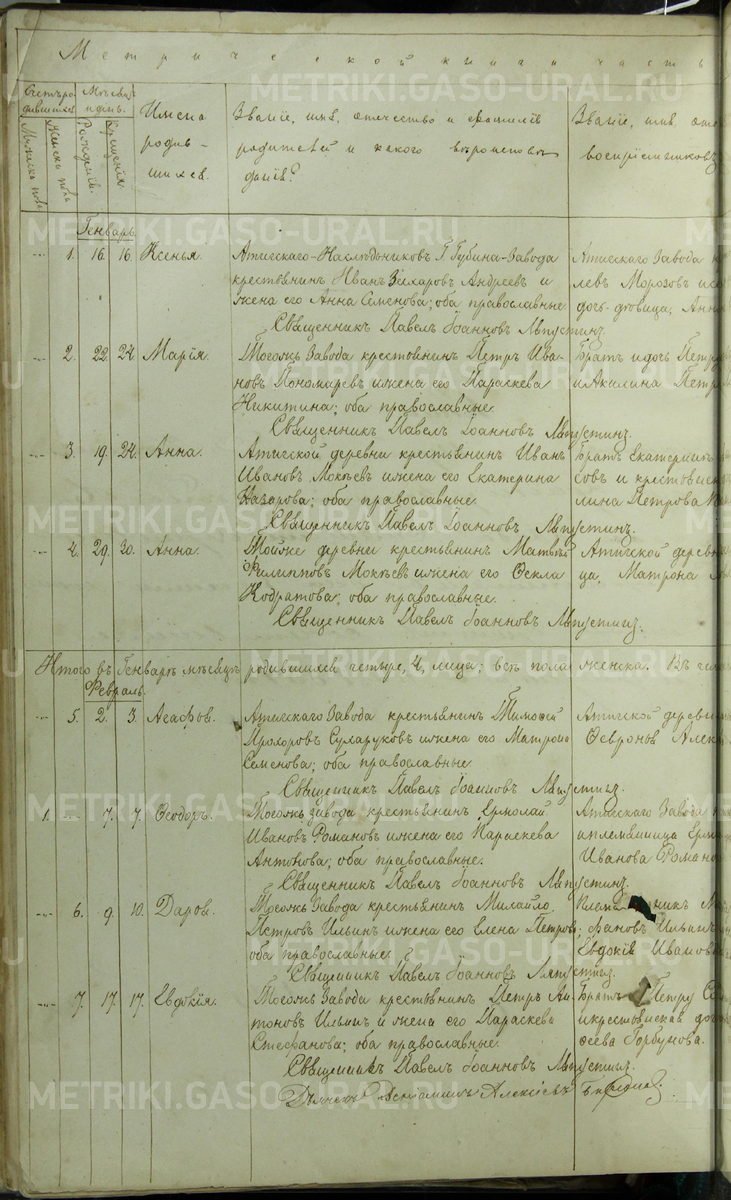 Метрической книги часть
METRIKI.GASO-URAL.RU
Счетъ родившихся.
Мужеска полъ
Женска полъ
Мѣсяцъ и день.
Рожденія.
Крещенія.
Имена
родив-
шихся.
Званіе, имя, отечество и фамилія
родителей и какого вѣроисповѣ
данія?
Званіе, имя, оте
воспріемниковъ
Генварь
1. 16. 16. Ксенья.
Атигскаго-Наслѣдниковъ Г Губина-Завода
крестьянинъ Иванъ Захаровъ Андреевъ и
жена его Анна Семенова; оба православные
Священникъ Павелъ Іоанновъ Ляпустинъ.
Атигскаго Завода
левъ Морозовъ и
дочь-дѣвица, Анн
2. 22. 24. Марія.
Тогожъ Завода крестьянинъ Петръ Ива-
новъ Пономаревъ и жена его Параскева
Никитина; оба православные
Священникъ Павелъ Іоанновъ Ляпустинъ.
Братъ и дочь Петру
и Акилина Петр
3. 19. 24. Анна.
Атигской деревни крестьянинъ Иванъ
Ивановъ Мокѣевъ и жена его Екатерина
Назарова; оба православные
Священникъ Павелъ Іоанновъ Ляпустинъ.
Братъ Екатерины
совъ и крестовск
лина Петрова
4. 29. 30. Анна.
Тойже деревни крестьянинъ Матвѣй
Филипповъ Мокѣевъ и жена его Ѳекла
Кодратова; оба православные.
Священникъ Павелъ Іоанновъ Ляпустинъ.
Атигской дерев
ца, Матрона
Итого въ Генварѣ мѣсяцѣ родившихся четыре, 4, лица; всѣ пола женска. Въ
Февраль.
5. 2. 3. Агафья.
Атигскаго Завода крестьянинъ Тимоѳей
Прохоровъ Сухаруковъ и жена его Матрона
Семенова; оба православные
Священникъ Павелъ Іоанновъ Ляпустинъ.
Атигской дерев
Ѳевронья Алек
1. 7. 7. Ѳеодоръ.
Тогожъ завода крестьянинъ Ермолай
Ивановъ Романовъ и жена его Параскева
Антонова; оба православные.
Священникъ Павелъ Іоанновъ Ляпустинъ.
Атигскаго Завода
и племянница Ерм
Иванова Романо
6. 9. 10. Дарья.
Тогожъ Завода крестьянинъ Михайло
Петровъ Ильинъ и жена его Елена Петрова;
оба православные.
Священникъ Павелъ Іоанновъ Ляпустинъ.
Плем никъ
фановъ Ильинъ
Евдокія Иванов
7. 17. 17. Евдокія.
Тогожъ Завода крестьянинъ Петръ Ан
тоновъ Ильинъ и жена его Параскева
Стефанова; оба православные.
Священникъ Павелъ Іоанновъ Ляпустинъ.
Братъ Петру
и крестовская доч
сѣева Горбунова.
Дьячекъ Веніаминъ Алексіевъ